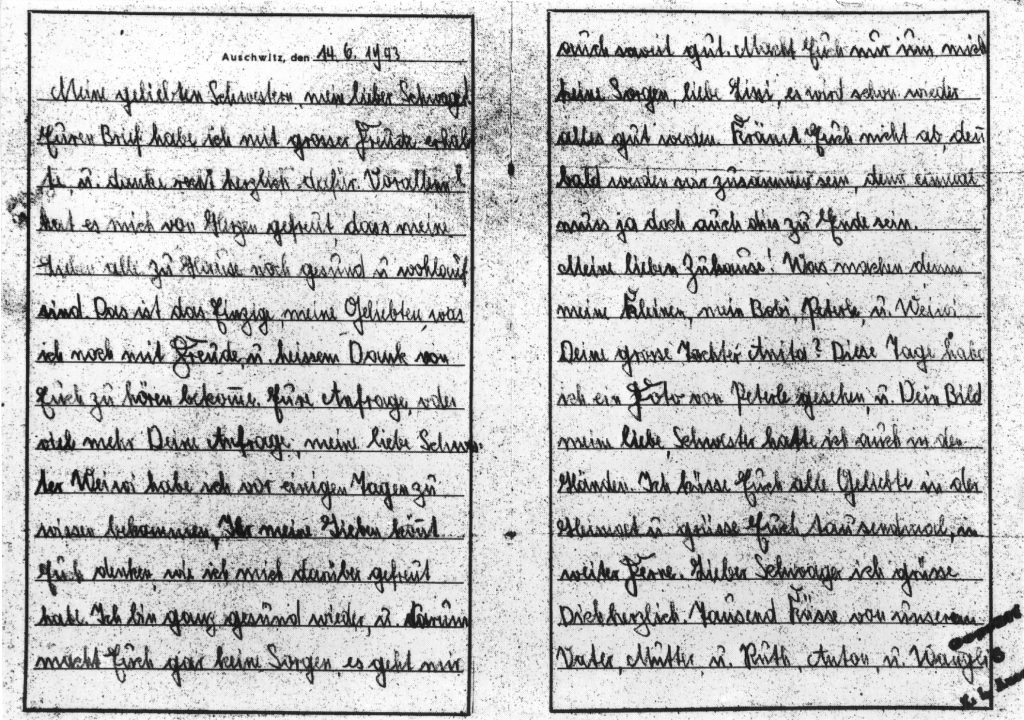 Auschwitz, den 14. 6. 1943
Meine geliebten Schwestern, mein lieber Schwager
Euren Brief habe ich mit grosser Freude erhal
te, u. danke recht herzlich dafür. Vorallem
hat es mich von Herzen gefreut, dass meine
Lieben alle zu Hause noch gesund u wohlauf
sind. Das ist das Einzige, meine Geliebten, was
ich noch mit Freude, u. heissem Dank von
Euch zu hören bekome. Eure Anfrage, oder
viel mehr Deine Anfrage, meine liebe Schwe-
ster Weiwi habe ich vor einigen Tagen zu
wissen bekommen, Ihr meine Lieben könt
Euch denken, wie ich mich darüber gefreut
habe. Ich bin ganz gesund wieder, u. darum
macht Euch gar keine Sorgen, es geht mir
auch soweit gut. Macht Euch nur um mich
keine Sorgen, liebe Zizi, es wird schon wieder
alles gut werden. Kränkt Euch nicht ab, den
bald werden wir zusammen sein, denn einmal
muss ja doch auch dies zu Ende sein.
Meine lieben Zuhause! Was machen denn
meine Kleinen, mein Bobi, Peterle, u. Weiwi
Deine grosse Tochter Anita? Diese Tage habe
ich ein Foto von Peterle gesehen, u. Dein Bild
meine liebe Schwester hatte ich auch in den
Händen. Ich küsse Euch alle Geliebte in der
Heimat u grüsse Euch tausendmal, in
weiter Ferne. Lieber Schwager ich grüsse
Dich herzlich. Tausend Küsse von unseren
Vater, Mutter, u. Ruth, Anton, u.